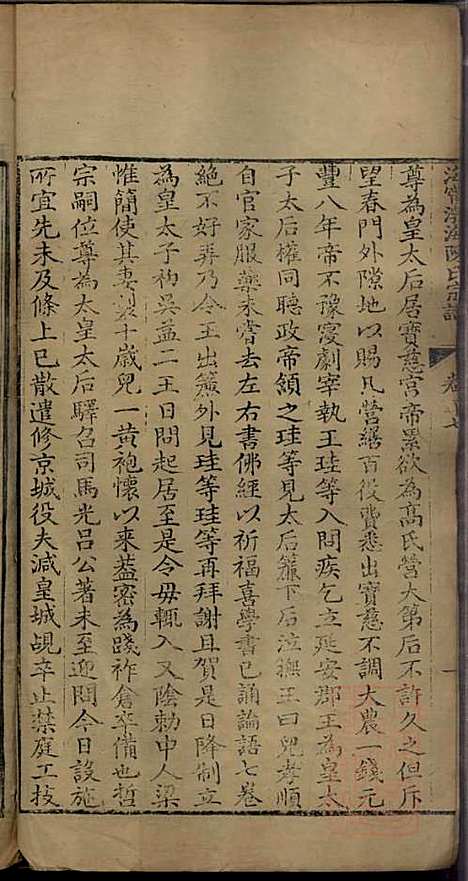 海寧渤海陳氏宗譜
尊為皇太后居寶慈宮帝累欲為高氏營大第后不許久之但斥
望春門外隙地以賜凡營繕百役費悉出寶慈不調大農一錢元
豐八年帝不豫寖劇宰執王珪等入問疾乞立延安郡王為皇太
子太后權同聽政帝頷之珪等見太后簾下后泣撫王曰兒孝順
自官家服藥未嘗去左右書佛經以祈福喜學書已誦論語七卷
絶不好弄乃令王出簾外見珪等珪等再拜謝且賀是日降制立
為皇太子初吳益二王日問起居至是令毋輒入又陰勑中人梁
惟簡使其妻製十歲兒一黃袍懷以來葢密為踐祚倉卒備也哲
宗嗣位尊為太皇太后驛召司馬光呂公著未至迎問今日設施
所宜先未及條上已散遣修京城役夫減皇城覘卒止禁庭工技